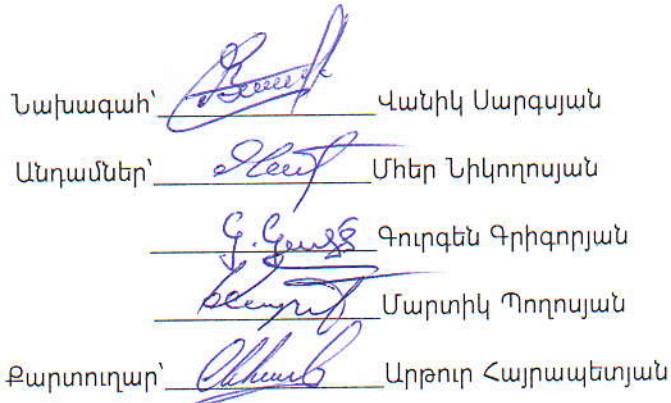 Նախագահ՝ Վանիկ Սարգսյան
Անդամներ՝ Մհեր Նիկողոսյան
Գուրգեն Գրիգորյան
Մարտիկ Պողոսյան
Քարտուղար՝ Արթուր Հայրապետյան